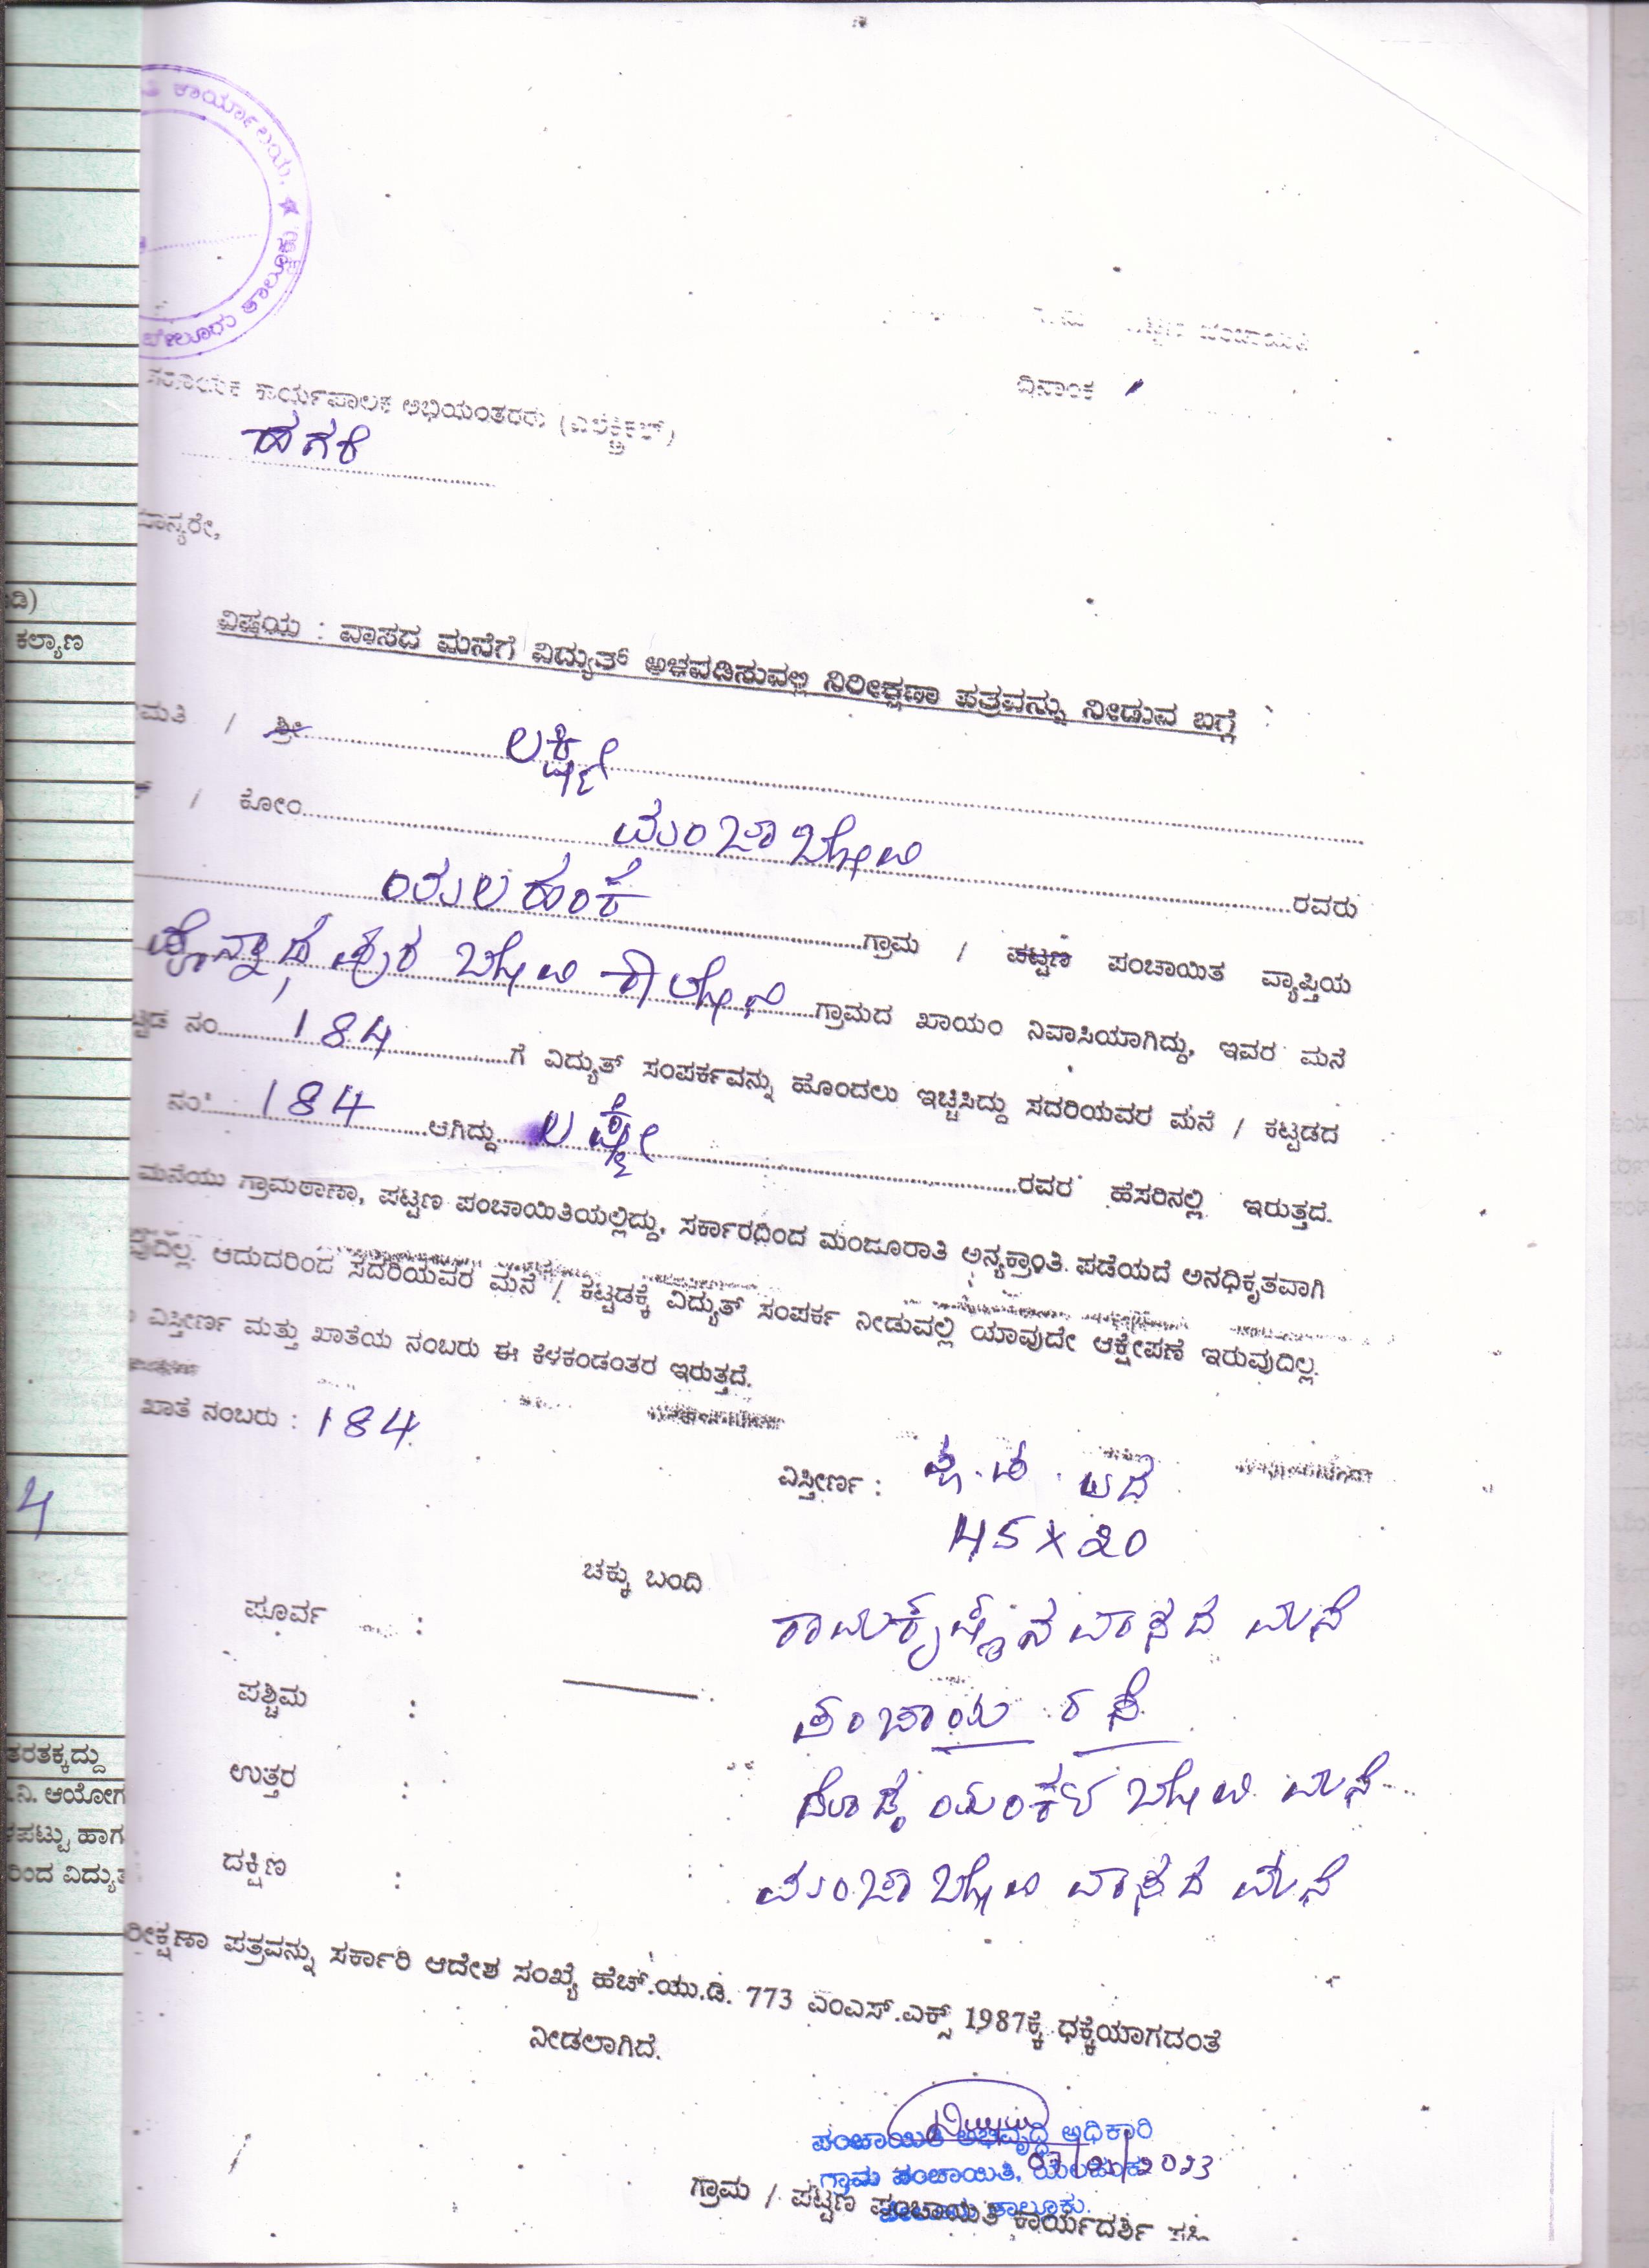 ಕಾರ್ಯಾಲಯ, ★
ಬೇಲೂರು
ದಿನಾಂಕ
ಸಹಾಯಕ ಕಾರ್ಯಪಾಲಕ ಅಭಿಯಂತರರು (ಎಲೆಕ್ಟ್ರಿಕಲ್)
ಹಗರೆ
ಮಾನ್ಯರೇ,
ವಿಷಯ : ವಾಸದ ಮನೆಗೆ ವಿದ್ಯುತ್ ಅಳವಡಿಸುವಲ್ಲಿ ನಿರೀಕ್ಷಣಾ ಪತ್ರವನ್ನು ನೀಡುವ ಬಗ್ಗೆ
ಮತಿ / ಶ್ರೀ ಲಕ್ಷ್ಮೀ
/ ಕೋಂ ಮಂಜಾಬೋವಿ ರವರು
ಯಲಹಂಕೆ ಗ್ರಾಮ / ಪಟ್ಟಣ ಪಂಚಾಯಿತ ವ್ಯಾಪ್ತಿಯ
ಬೋವಿ ಕಾಲೋನಿ ಗ್ರಾಮದ ಖಾಯಂ ನಿವಾಸಿಯಾಗಿದ್ದು, ಇವರ ಮನೆ
ಟ್ಟಡ ನಂ 184 ಗೆ ವಿದ್ಯುತ್ ಸಂಪರ್ಕವನ್ನು ಹೊಂದಲು ಇಚ್ಚಿಸಿದ್ದು ಸದರಿಯವರ ಮನೆ / ಕಟ್ಟಡದ
ನಂ 184 ಆಗಿದ್ದು ಲಕ್ಷ್ಮೀ ರವರ ಹೆಸರಿನಲ್ಲಿ ಇರುತ್ತದೆ.
ಮನೆಯು ಗ್ರಾಮಠಾಣಾ, ಪಟ್ಟಣ ಪಂಚಾಯಿತಿಯಲ್ಲಿದ್ದು, ಸರ್ಕಾರದಿಂದ ಮಂಜೂರಾತಿ ಅನ್ಯಕ್ರಾಂತಿ ಪಡೆಯದೆ ಅನಧಿಕೃತವಾಗಿ
ವುದಿಲ್ಲ. ಆದುದರಿಂದ ಸದರಿಯವರ ಮನೆ / ಕಟ್ಟಡಕ್ಕೆ ವಿದ್ಯುತ್ ಸಂಪರ್ಕ ನೀಡುವಲ್ಲಿ ಯಾವುದೇ ಆಕ್ಷೇಪಣೆ ಇರುವುದಿಲ್ಲ.
ವಿಸ್ತೀರ್ಣ ಮತ್ತು ಖಾತೆಯ ನಂಬರು ಈ ಕೆಳಕಂಡಂತರ ಇರುತ್ತದೆ.
ಖಾತೆ ನಂಬರು : 184
ವಿಸ್ತೀರ್ಣ :
45×20
ಚಕ್ಕು ಬಂದಿ
ಪೂರ್ವ : ರಾಮಕೃಷ್ಣನ ವಾಸದ ಮನೆ
ಪಶ್ಚಿಮ : ಪಂಚಾಯ ರಸ್ತೆ
ಉತ್ತರ : ದೊಡ್ಡ ಯಂಕಟ ಬೋವಿ ಮನೆ
ದಕ್ಷಿಣ : ಮಂಜಾ ಬೋವಿ ವಾಸದ ಮನೆ
ರೀಕ್ಷಣಾ ಪತ್ರವನ್ನು ಸರ್ಕಾರಿ ಆದೇಶ ಸಂಖ್ಯೆ ಹೆಚ್.ಯು.ಡಿ. 773 ಎಂಎಸ್.ಎಕ್ಸ್ 1987ಕ್ಕೆ ಧಕ್ಕೆಯಾಗದಂತೆ
ನೀಡಲಾಗಿದೆ.
ಪಂಚಾಯಿತಿ ಅಭಿವೃದ್ಧಿ ಅಧಿಕಾರಿ
ಗ್ರಾಮ ಪಂಚಾಯಿತಿ, ಯಲಹಂಕ
ತಾಲ್ಲೂಕು.
ಗ್ರಾಮ / ಪಟ್ಟಣ ಪಂಚಾಯಿತಿ ಕಾರ್ಯದರ್ಶಿ ಸಹಿ
ಡಿ)
ಕಲ್ಯಾಣ
4
ತರತಕ್ಕದ್ದು
.ನಿ. ಆಯೋಗ
ಳಪಟ್ಟು ಹಾಗ
ರಿಂದ ವಿದ್ಯುತ